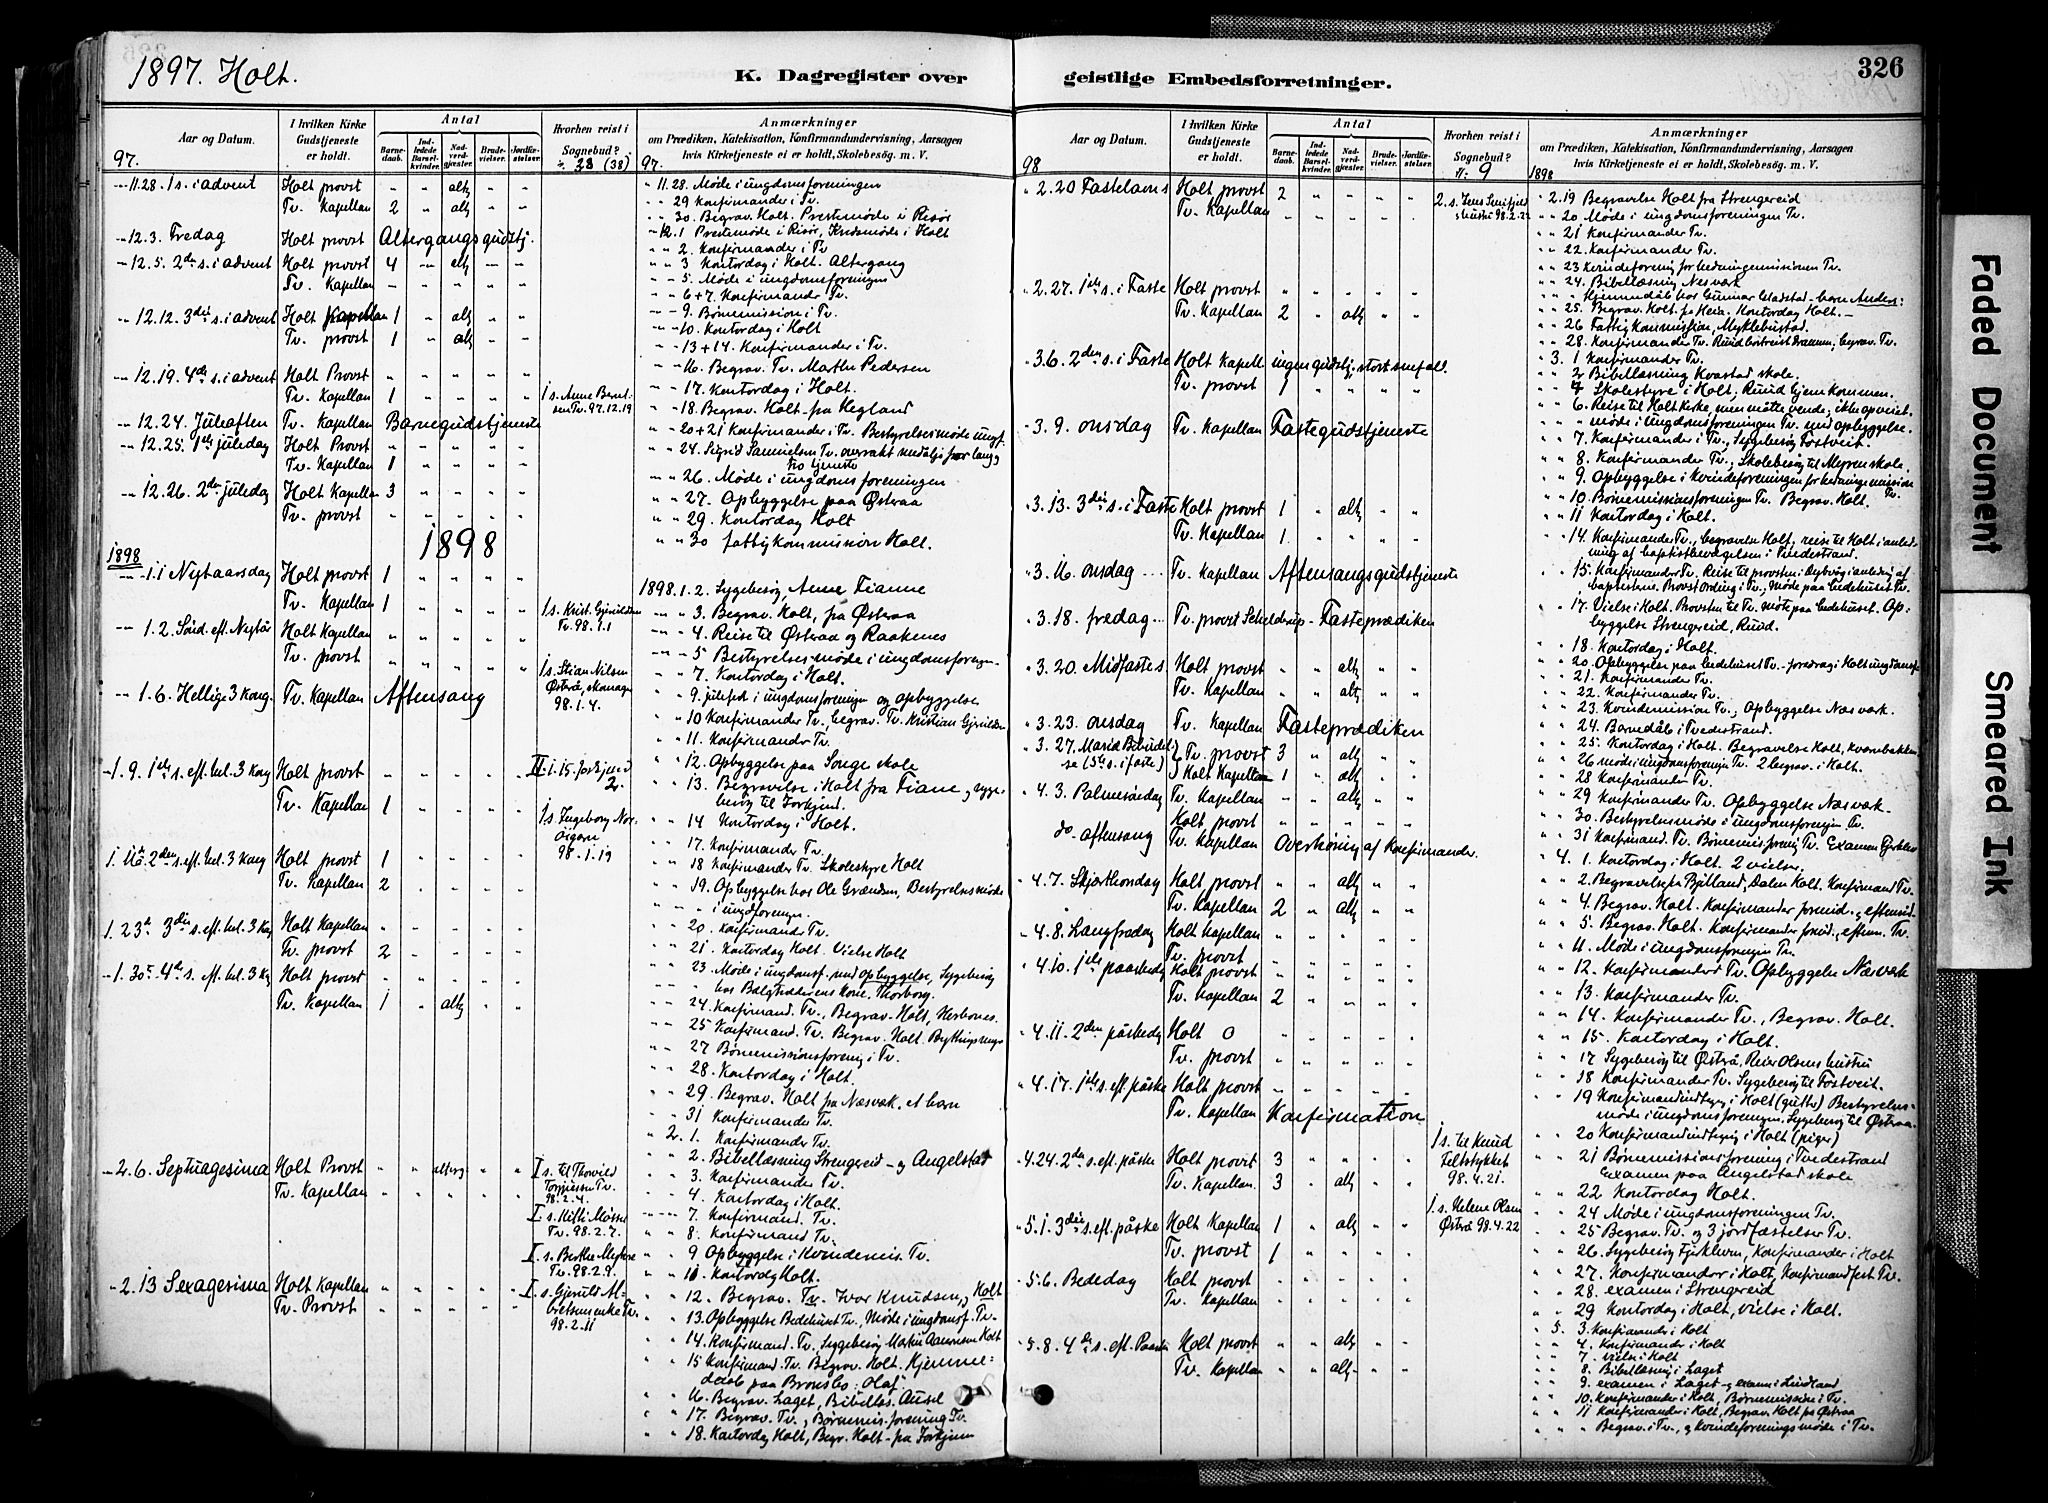 1897. Holt.
K. Dagregister over geistlige Embedsforretninger.
326
Aar og Datum.
I hvilken Kirke Gudstjeneste er holdt.
Antal
Barnedaab.
Indledede Barselkvinder.
Nadverdgjæster.
Brudevielser.
Jordfæstelser.
Hvorhen reist i Sognebud?
Anmærkninger
om Prædiken, Katekisation, Konfirmandundervisning, Aarsagen
hvis Kirketjeneste ei er holdt, Skolebesög. m. V.
97.
11.28. 1 s. i advent Holt provst " " altg " "
Tv. Kapellan 2 " altg " "
12.3. Fredag Holt provst Altergangsgudstj.
12.5. 2den s. i advent Holt provst 4 – altg – –
Tv. Kapellan
12.12. 3die s. i advent Holt Kapellan 1 " altg " "
Tv. provst 1 " altg " "
12.19. 4de s. i advent Holt Provst
Tv. Kapellan 1
12.24. Juleaften Tv. Kapellan Barnegudstjeneste
12.25. 1ste juledag Holt Provst
Tv. Kapellan 1
12.26. 2den juledag Holt Kapellan 3
Tv. provst
1898
1898
1.1 Nytaarsdag Holt provst 1
Tv. Kapellan 1
1.2. Sønd. eft. Nytår Holt Kapellan
Tv. provst
1.6. Hellige 3 kong. Tv. Kapellan Aftensang
1.9. 1ste s. eft. hel. 3 kong Holt provst
Tv. Kapellan 1
1.16. 2den s. eft. hel. 3 kong Holt provst 1
Tv. Kapellan 2
1.23. 3die s. eft. hel. 3 kong Holt Kapellan
Tv. provst 2
1.30. 4de s. eft. hel. 3 kg Holt provst
Tv. Kapellan 1 " altg
2.6. Septuagesima Holt Provst
Tv. Kapellan
2.13 Sexagesima Holt Kapellan
Tv. Provst
23 (38)
Tv. 97.12.19
Tv. 98.1.1
1 s. Stian Nilsen
98.1.4.
1 s. Ingeborg
98.1.19
98.2.4.
Tv. 98.2.7.
Tv. 98.2.9.
98.2.11
97.
11.28. Møde i ungdomsforeningen
29 Konfirmander i Tv.
30. Begrav. Holt. Prestemøde i Risør
12.1 Prestemøde i Risør, Kredsmøde i Holt
2. Konfirmander i Tv
3 Kontordag i Holt. Altergang
5. Møde i ungdomsforeningen
6+7. Konfirmander Tv.
9. Børnemission i Tv.
10. Kontordag i Holt
13+14. Konfirmander i Tv.
16. Begrav. Tv. Marthe Pedersen
17. Kontordag i Holt.
18. Begrav. Holt – fra Hegland
20+21 Konfirmander i Tv. Bestyrelsesmøde ungf.
24. Sigrid Samuelsen Tv. overrakt medalje for lang
tro tjeneste
26. Møde i ungdomsforeningen
27. Opbyggelse paa Østraa
29. Kontordag Holt
30 fattigkommission Holt.
1898.1.2. Sygebesøg, Anne Fianne
3. Begrav. Holt, fra Østraa
4. Reise til Østraa og Raakenes
5 Bestyrelsesmøde i ungdomsforeningen
7. Kontordag i Holt.
9. julefest i ungdomsforeningen og opbyggelse
10 Konfirmander Tv, begrav. Tv. Kristian
11. Konfirmander Tv.
12. Opbyggelse paa Songe skole
13. Begravelse i Holt fra Fiane, syge-
besøg til
14 Kontordag i Holt.
17. Konfirmander Tv.
18 Konfirmander Tv. Skolestyre Holt
19. Opbyggelse hos Ole Grændsen, Bestyrelsesmøde
i ungdforeningen.
20. Konfirmander Tv.
21. Kontordag Holt. Vielse Holt
23. Møde i ungdomsf. med opbyggelse, Sygebesøg
24. Konfirmand. Tv., Begrav. Holt,
25 Konfirmand. Tv. Begrav. Holt.
27 Børnemissionsforening i Tv.
28. Kontordag i Holt.
29. Begrav. Holt fra Næsvæk. et barn
31 Konfirmander Tv.
2. 1. Konfirmander Tv.
2. Bibellæsning Strengereid – og Angelstad
3. Konfirmander Tv.
4. Kontordag i Holt.
7. Konfirmand. Tv.
8. Konfirmand Tv.
9 Opbyggelse i Kvindemis. Tv.
11. Kontordg Holt.
12. Begrav. Tv. Ivar Knudsen, Holt
13. Opbyggelse Bedehuset Tv., Møde i ungdomsf. Tv.
14. Konfirmand. Tv., Sygebesøg Holt
15 Konfirmand. Tv. Begrav. Holt. Hjemme-
daab paa : Olaf
16. Begrav. Laget,
17. Begrav. Tv., Børnemis. forening Tv.
18. Kontordag Holt, Begr. Holt – fra
Aar og Datum.
I hvilken Kirke Gudstjeneste er holdt.
Antal
Barnedaab.
Indledede Barselkvinder.
Nadverdgjæster.
Brudevielser.
Jordfæstelser.
Hvorhen reist i Sognebud?
Anmærkninger
om Prædiken, Katekisation, Konfirmandundervisning, Aarsagen
hvis Kirketjeneste ei er holdt, Skolebesög. m. V.
98
2.20 Fastelavns Holt provst 2
Tv. Kapellan
2.27. 1ste s. i Faste Holt provst
Tv. Kapellan 2 " altg
3.6. 2den s. i Faste Holt Kapell. ingen gudstj. stort snefald.
Tv. provst 1
3.9. onsdag Tv. Kapellan Fastegudstjeneste
3.13. 3die s. i Faste Holt provst 1 " altg
Tv. Kapellan 1
3.16. onsdag Tv. Kapellan Aftensangsgudstjeneste
3.18. fredag Tv. provst Schelderup – Fasteprædiken
3.20. Midfastes Holt provst " " altg
Tv. Kapellan " " altg
3.23. onsdag Tv. Kapellan Fasteprædiken
3.27. Mariæ Bebudel-
se (5te s. i faste) Tv. provst 3 " altg
Holt Kapellan 1 " altg
4.3. Palmesøndag Tv. Kapellan " " altg
Holt provst
do. aftensang Tv. Kapellan Overhøring af Konfirmander.
4.7. Skjærthorsdag Holt provst " " altg
Tv. Kapellan 2 " altg
4.8. Langfredag Holt Kapellan
Tv. provst
4.10. 1ste paaskedg Holt provst
Tv. Kapellan 2
4.11. 2den påskedg Holt 0
Tv. provst
4.17. 1ste s. eft. påske Holt provst
Tv. Kapellan Konfirmation
4.24. 2den s. eft. påske Holt provst 3
Tv. Kapellan. 3 " altg
5.1. 3die s. eft. påske Holt Kapellan 1 " altg
Tv. provst 1
5.6. Bededag Holt provst
Tv. Kapellan
5.8. 4de s. eft. Paaske Holt provst " " altg
Tv. Kapellan " " altg
9
98.2.22
1 s. til Knud
98.4.21.
1 s. Helene Olsen
Østrå 98.4.22
1898
2.19 Begravelse Holt fra Strengereid
20 Møde i ungdomsforeningen Tv.
21 Konfirmander Tv.
22. Konfirmander Tv.
23 Kvindeforening for hedningemissionen Tv.
24. Bibellæsning Næsværk
Hjemmedåb hos Gunnar – barn Anders:
25. Begrav. Holt. fra Heia. Kontordag Holt. –
26 Fattigkommission, Myklebustad.
28. Konfirmander Tv. begrav. Tv.
3. 1 Konfirmander Tv.
2 Bibellæsning Kvastad skole.
4 Skolestyre i Holt, Ruud hjem kommen.
6. Reise til Holt Kirke, men måtte vende, ikke opveiet.
møde i ungdomsforeningen Tv. med opbyggelse.
7. Konfirmander i Tv., Sygebesøg Fostveit.
8. Konfirmander Tv., Skolebesøg til skole.
9. Opbyggelse i Kvindeforeningen for hedningemission Tv.
10. Børnemissionsforeningen Tv. Begrav. Holt.
11 Kontordag i Holt.
14. Konfirmander Tv., begravelse Holt, reise til Holt i anled-
ning af baptistbevægelsen i Tvedestrand.
15. Konfirmander Tv. Reise til provsten i Dybvåg i anledning af
baptisterne. Provst Ording i Tv., Møde paa bedehuset Tv.
17. Vielse i Holt. Provsten til Tv. Møte paa bedehuset. Op-
byggelse Strengereid, Ruud.
18. Kontordag i Holt.
20. Opbyggelse paa bedehuset Tv. – foredrag i Holt ungdomsf.
21. Konfirmander Tv.
22. Konfirmander Tv.
23. Kvindemission Tv., Opbyggelse Næsværk.
24. Barnedåb i Tvedestrand.
25. Kontordag i Holt. Begravelse Holt, Kvernbakken
26 møde i ungdomsforeningen Tv. 2 begrav. i Holt.
28 Konfirmander Tv.
29 Konfirmander Tv. Opbyggelse Næsværk.
30. Bestyrelsesmøde i ungdomsforeningen Tv.
31 Konfirmand. Tv. Børnemis. forening Tv. Examen
4. 1. Kontordag i Holt. 2 vielser.
2. Begravelse fra Bjelland, Dalen Holt. Konfirmand Tv.
4. Begrav. Holt. Konfirmander formid. og eftermid.
5. Begrav. Holt. Konfirmander formid., efterm. Tv.
11. Møde i ungdomsforeningen Tv.
12. Konfirmander Tv. Opbyggelse Næsværk
13. Konfirmander Tv.
14. Konfirmander Tv., Begrav. Holt.
15. Kontordag i Holt.
17 Sygebesøg til Østrå, Reier Olsens hustru
18 Konfirmander Tv. Sygebesøg til Fostveit.
19 Konfirmandindtegn. i Holt (gutter) Bestyrelses-
møde i ungdomsforeningen, Sygebesøg til Østraa.
20 Konfirmandindtegng i Holt (piger)
21 Børnemissionsforening i Tvedestrand
Examen paa Angelstad skole
22 Kontordag Holt.
24 Møde i ungdomsforeningen Tv.
25 Begrav. Tv. og 3 jordfæstelser Tv.
26. Sygebesøg Fjukheen, Konfirmander i Holt
27. Konfirmander i Holt, Konfirmandfest Tv.
28. examen i Strengereid
29 Kontordag i Holt, vielse i Holt.
5. 3. Konfirmander i Holt
4. Konfirmander i Holt
7. vielse i Holt
8. Bibellæsn. i Laget
9. examen i Laget – og examen i
10. Konfirmander i Holt, Børnemission i Tv.
11 Konfirmander i Holt, Begrav. Holt fra Østraa
Begrav. i Tv., og kvindeforeningsmøde i Tv.
Faded Document
Smeared Ink